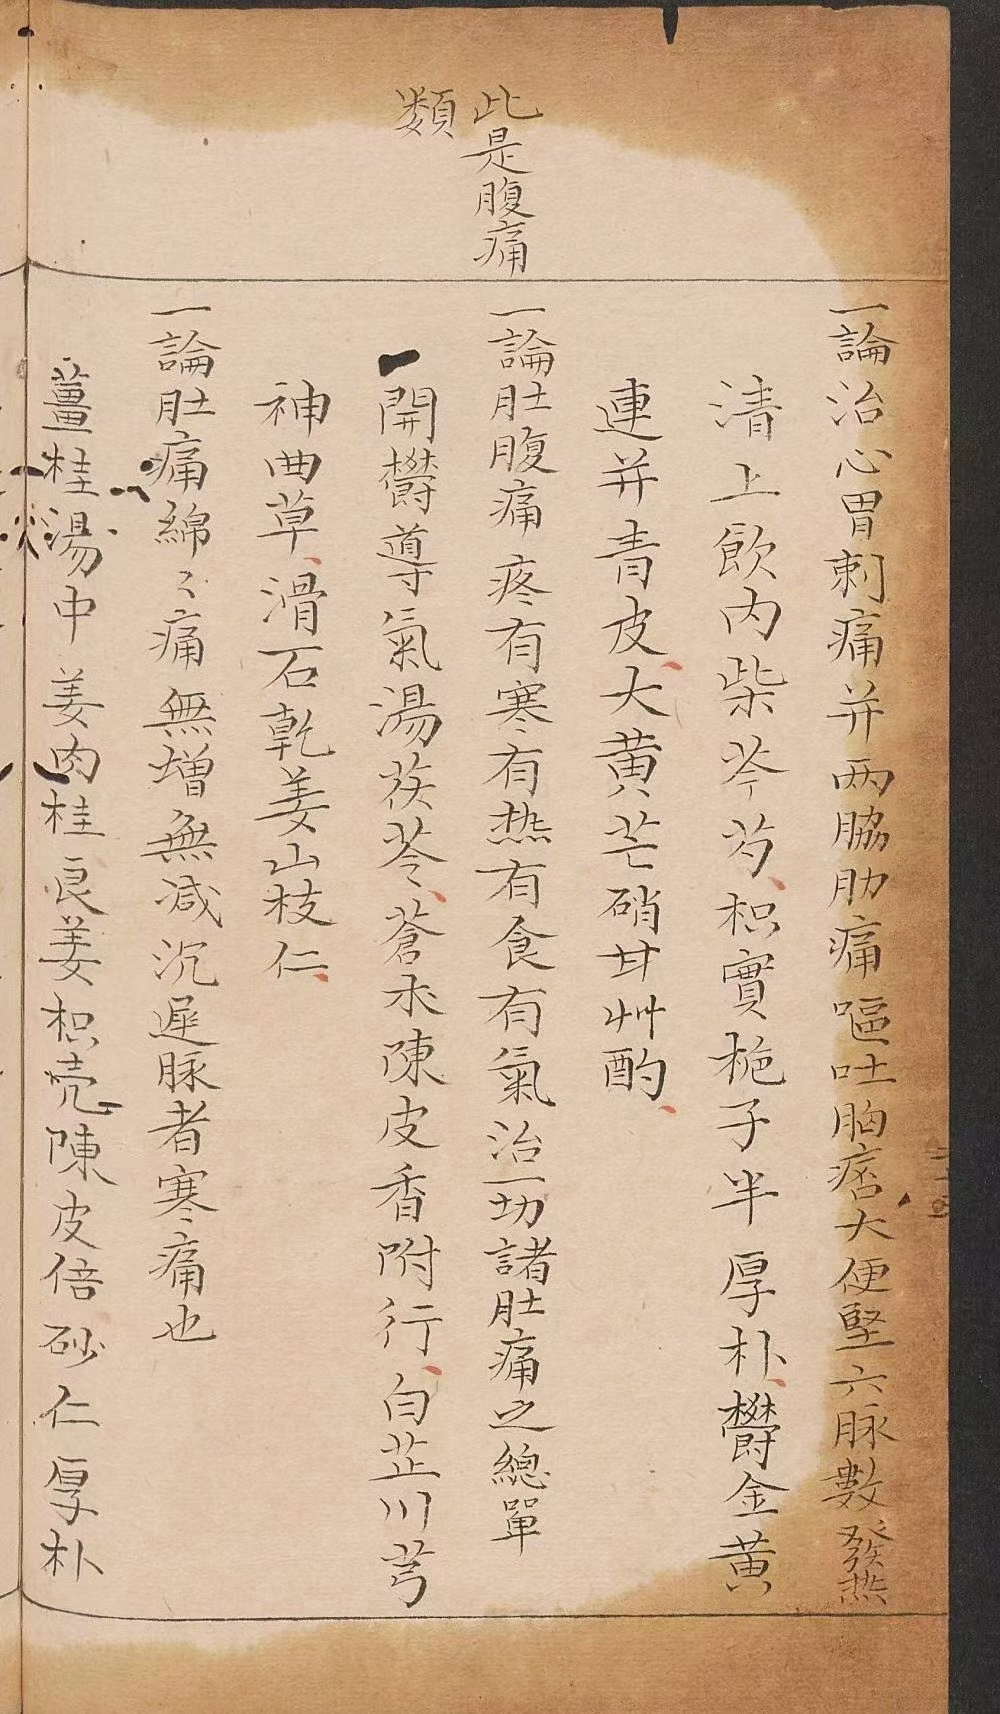 此是腹痛
類
一論治心胃刺痛并两脇肋痛嘔吐胸痞大便堅六脉數發热
清上飲内柴芩芍枳實梔子半厚朴欝金黄
連并青皮大黄芒硝甘艸酌
一論肚腹痛疼有寒有热有食有氣治一切諸肚痛之總單
開欝導氣湯茯苓蒼朮陳皮香附行白芷川芎
神曲草滑石乾姜山枝仁
一論肚痛綿々痛無增無减沉遲脉者寒痛也
薑桂湯中姜肉桂良姜枳壳陳皮倍砂仁厚朴